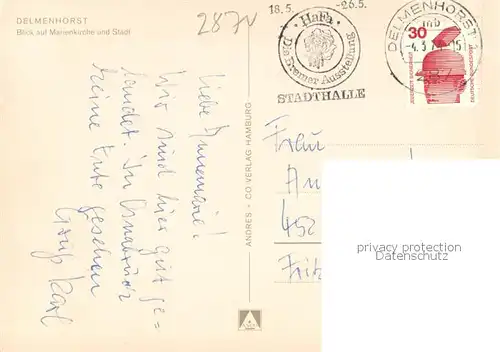 DELMENHORST
Blick auf Marienkirche und Stadt
287v
18.5. -26.5.
HaFa
Die Bremer Ausstellung
STADTHALLE
DELMENHORST 1
mb
-4.3.7 -15
30
DEUTSCHE BUNDESPOST
Liebe Annemarie!
Wir sind hier gut ge=
landet. In Osnabrück
keine Ente gesehen
Gruß Karl
ANDRES + CO VERLAG HAMBURG
Frau
An
452
Fritz
privacy protection
Datenschutz